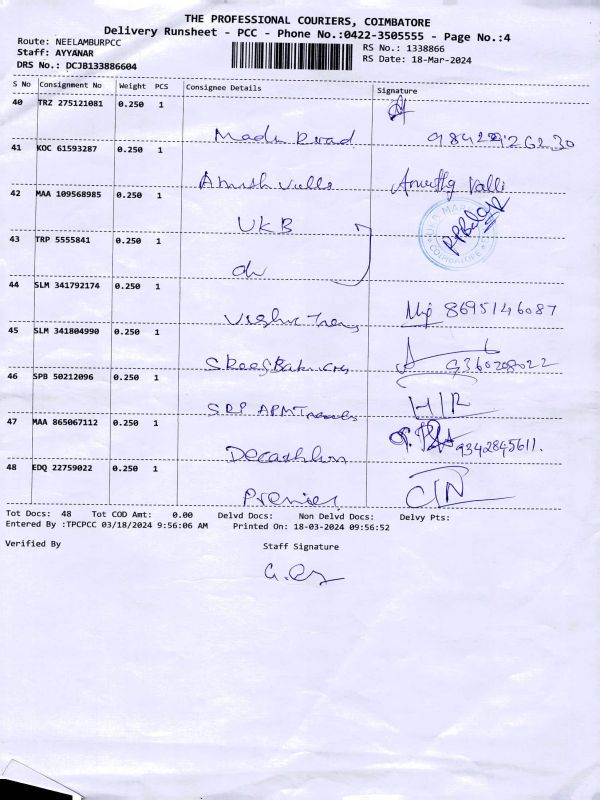 THE PROFESSIONAL COURIERS, COIMBATORE
Delivery Runsheet - PCC - Phone No.:0422-3505555 - Page No.:4
Route: NEELAMBURPCC
RS No.: 1338866
Staff: AYYANAR
RS Date: 18-Mar-2024
DRS No.: DCJB133886604
S No Consignment No Weight PCS Consignee Details Signature
40 TRZ 275121081 0.250 1
41 KOC 61593287 0.250 1
42 MAA 109568985 0.250 1
UKB
43 TRP 5555841 0.250 1
44 SLM 341792174 0.250 1
8695146087
45 SLM 341804990 0.250 1
46 SPB 50212096 0.250 1
47 MAA 865067112 0.250 1
Decathlon 9342845611.
48 EDQ 22759022 0.250 1
Premier
Tot Docs: 48 Tot COD Amt: 0.00 Delvd Docs: Non Delvd Docs: Delvy Pts:
Entered By :TPCPCC 03/18/2024 9:56:06 AM Printed On: 18-03-2024 09:56:52
Verified By Staff Signature